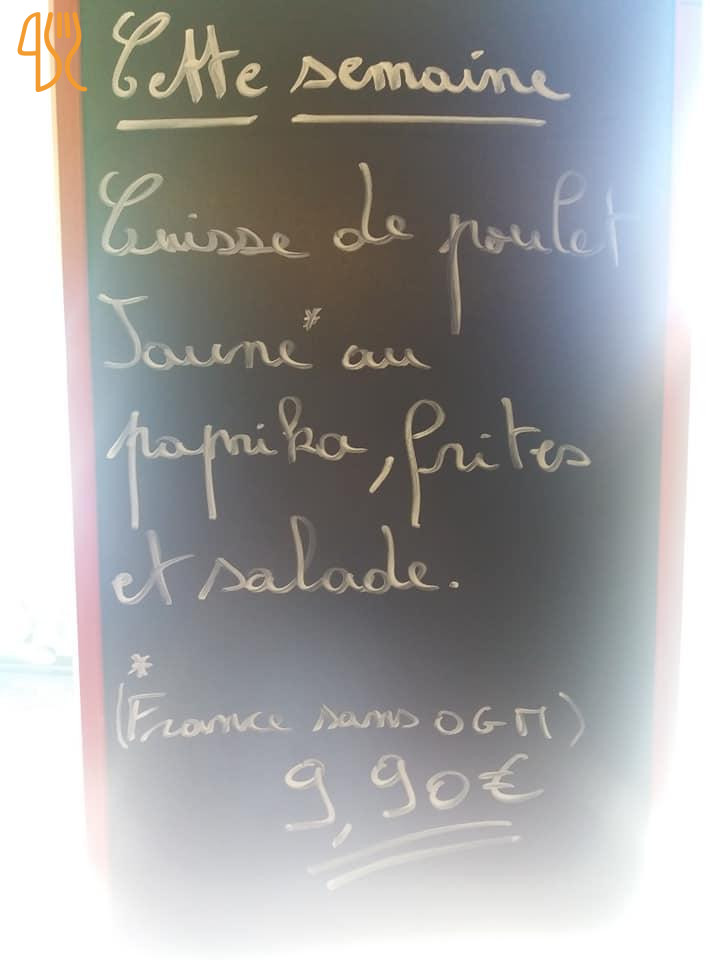 Cette semaine
Cuisse de poulet
Jaune* au
paprika, frites
et salade.
*
(France sans OGM)
9,90€